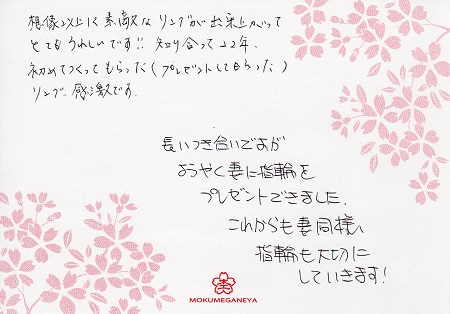 想像以上に素敵なリングが出来上がって
とてもうれしいです!! 知り合って22年、
初めてつくってもらった(プレゼントしてもらった)
リング、感激です。
長いつき合いですが
ようやく妻に指輪を
プレゼントできました、
これからも妻同様、
指輪も大切に
していきます!
MOKUMEGANEYA